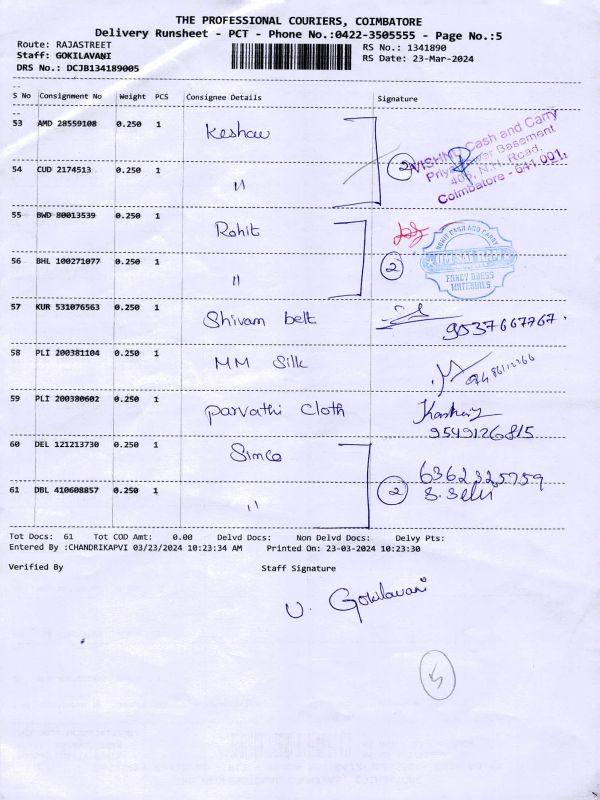 THE PROFESSIONAL COURIERS, COIMBATORE
Delivery Runsheet - PCT - Phone No.:0422-3505555 - Page No.:5
Route: RAJASTREET
Staff: GOKILAVANI
DRS No.: DCJB134189005
RS No.: 1341890
RS Date: 23-Mar-2024
S No Consignment No Weight PCS Consignee Details Signature
53 AMD 28559108 0.250 1 Keshav
VISHNU Cash and Carry
Basement
N.H. Road.
Coimbatore - 641 001.
54 CUD 2174513 0.250 1 " 2
55 BWD 80013539 0.250 1 Rohit
ROHIT CASH AND CARRY
OM SAI RAM
FANCY DRESS
MATERIALS
56 BHL 100271077 0.250 1 " 2
57 KUR 531076563 0.250 1 Shivam belt 9537667767.
58 PLI 200381104 0.250 1 MM Silk
59 PLI 200380602 0.250 1 Parvathi Cloth
9549126815
60 DEL 121213730 0.250 1 Simco 6362325759
61 DBL 410608857 0.250 1 " 2 S. Selvi
Tot Docs: 61 Tot COD Amt: 0.00 Delvd Docs: Non Delvd Docs: Delvy Pts:
Entered By :CHANDRIKAPVI 03/23/2024 10:23:34 AM Printed On: 23-03-2024 10:23:30
Verified By Staff Signature
V. Gokilavani
5